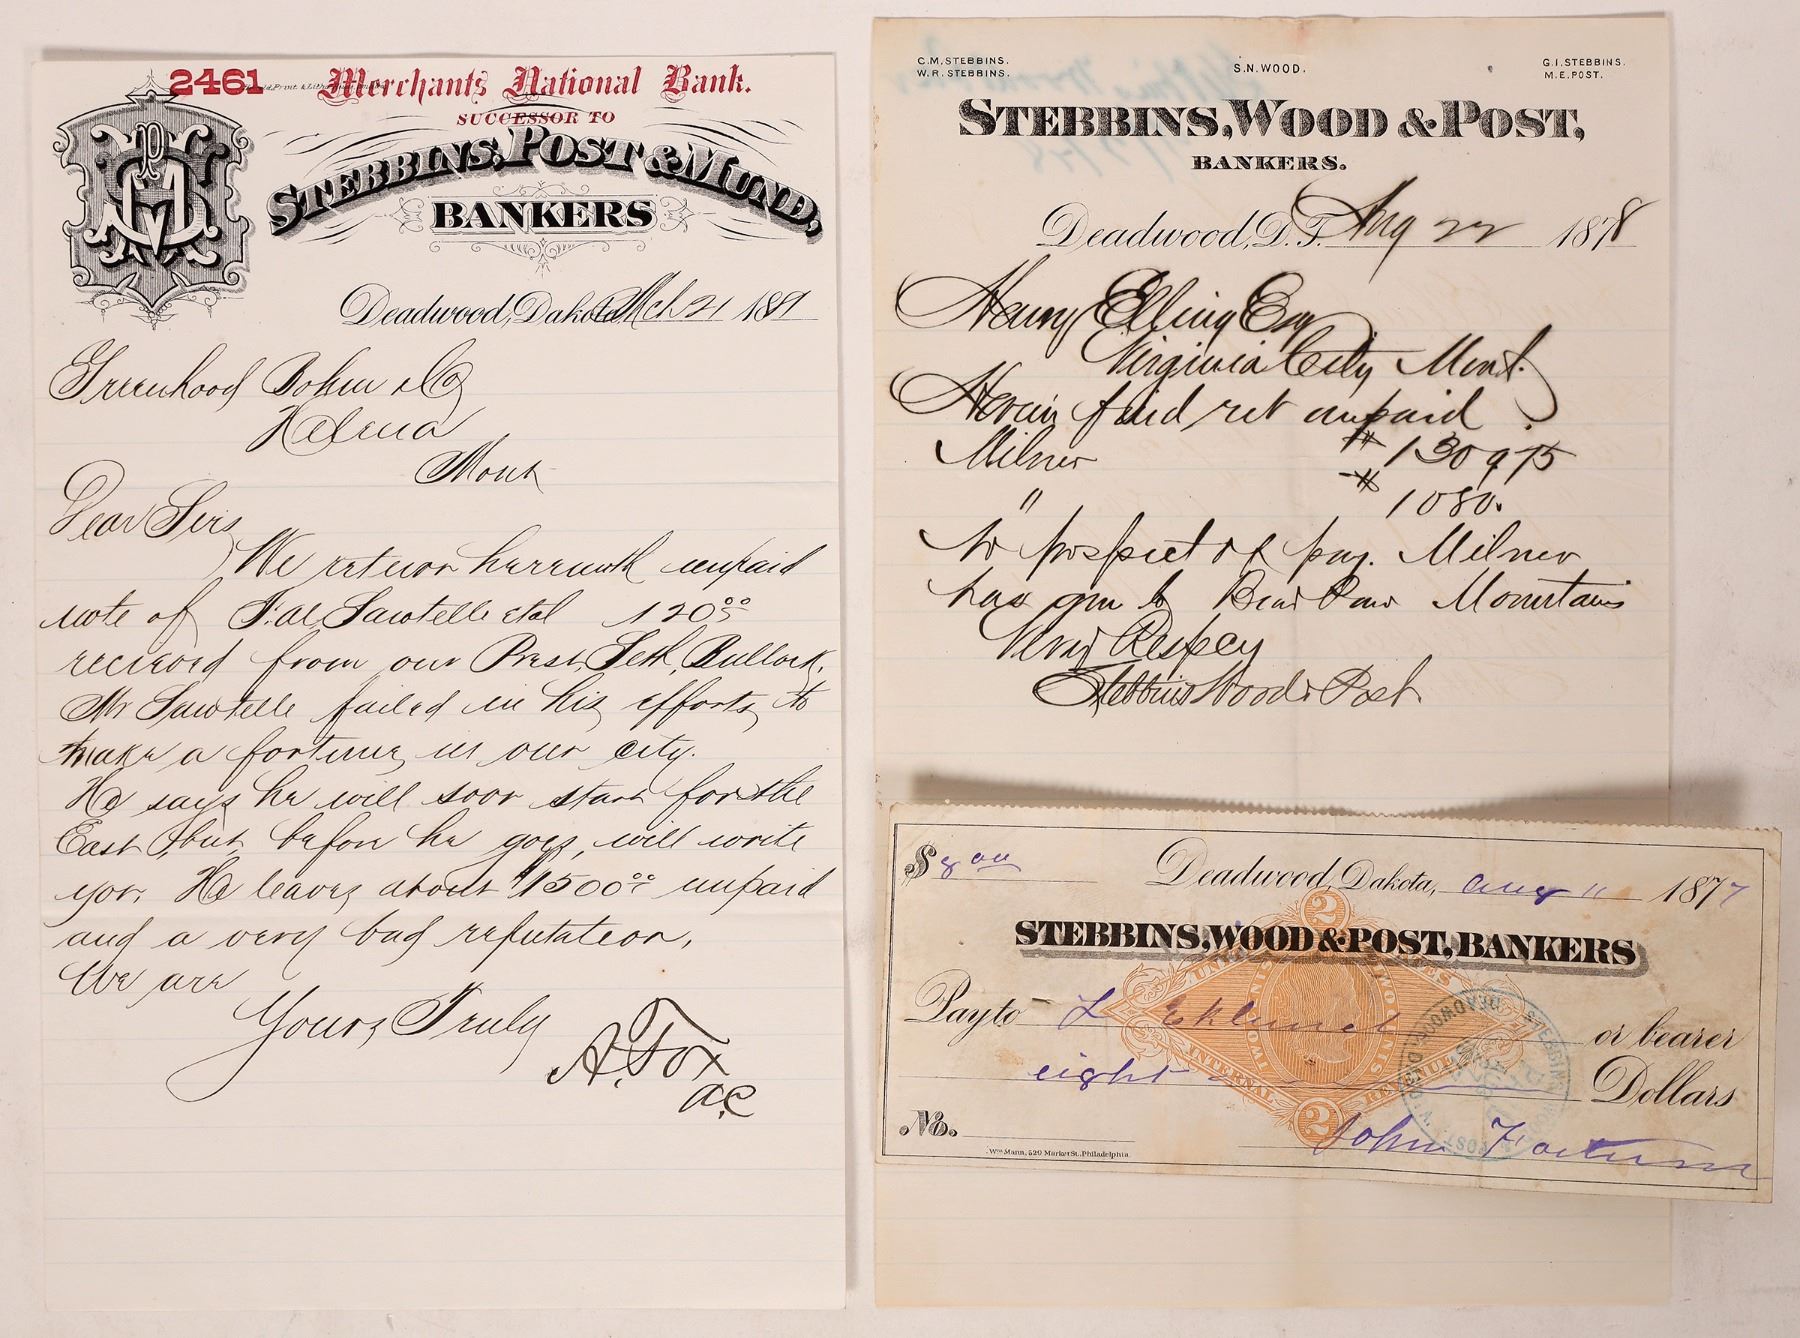 2461 Merchants National Bank.
SUCCESSOR TO
STEBBINS, POST & MUND,
BANKERS
Deadwood, Dakota Mch 21 1881
Greenhood Bohm & Co
Helena
Mont
Dear Sirs
We return herewith unpaid
note of F. W. Sawtelle et al 120.00
received from our Prest Seth Bullock.
Mr Sawtelle failed in his efforts to
make a fortune in our city.
He says he will soon start for the
East, but before he goes, will write
you, He leaves about $1500.00 unpaid
and a very bad reputation,
We are
Yours Truly
A. Fox
A.C
C.M. STEBBINS.
W.R. STEBBINS.
S.N. WOOD.
G.I. STEBBINS.
M.E. POST.
STEBBINS, WOOD & POST,
BANKERS.
Deadwood, D.T. Aug 22 1878
Henry Elling Esq
Virginia City Mont.
Herein find ret unpaid
Milner # 1309 75
" # 1080.
No prospect of pay. Milner
has gone to Bear Paw Mountains
Very Respcy
Stebbins Wood & Post
$ 8 00
Deadwood, Dakota, Aug 11 1877
STEBBINS, WOOD & POST, BANKERS
Pay to L Eklund or bearer
eight Dollars
No.
John
Wm Mann, 529 Market St. Philadelphia.
2
UNITED STATES
INTERNAL REVENUE
TWO CENTS
2
STEBBINS, WOOD & POST
DEADWOOD, D.T.